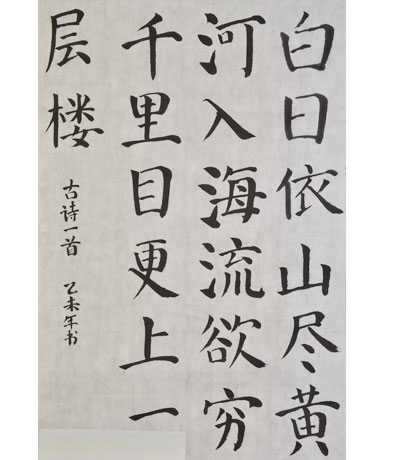 白日依山尽黄
河入海流欲穷
千里目更上一
层楼
古诗一首 乙未年书